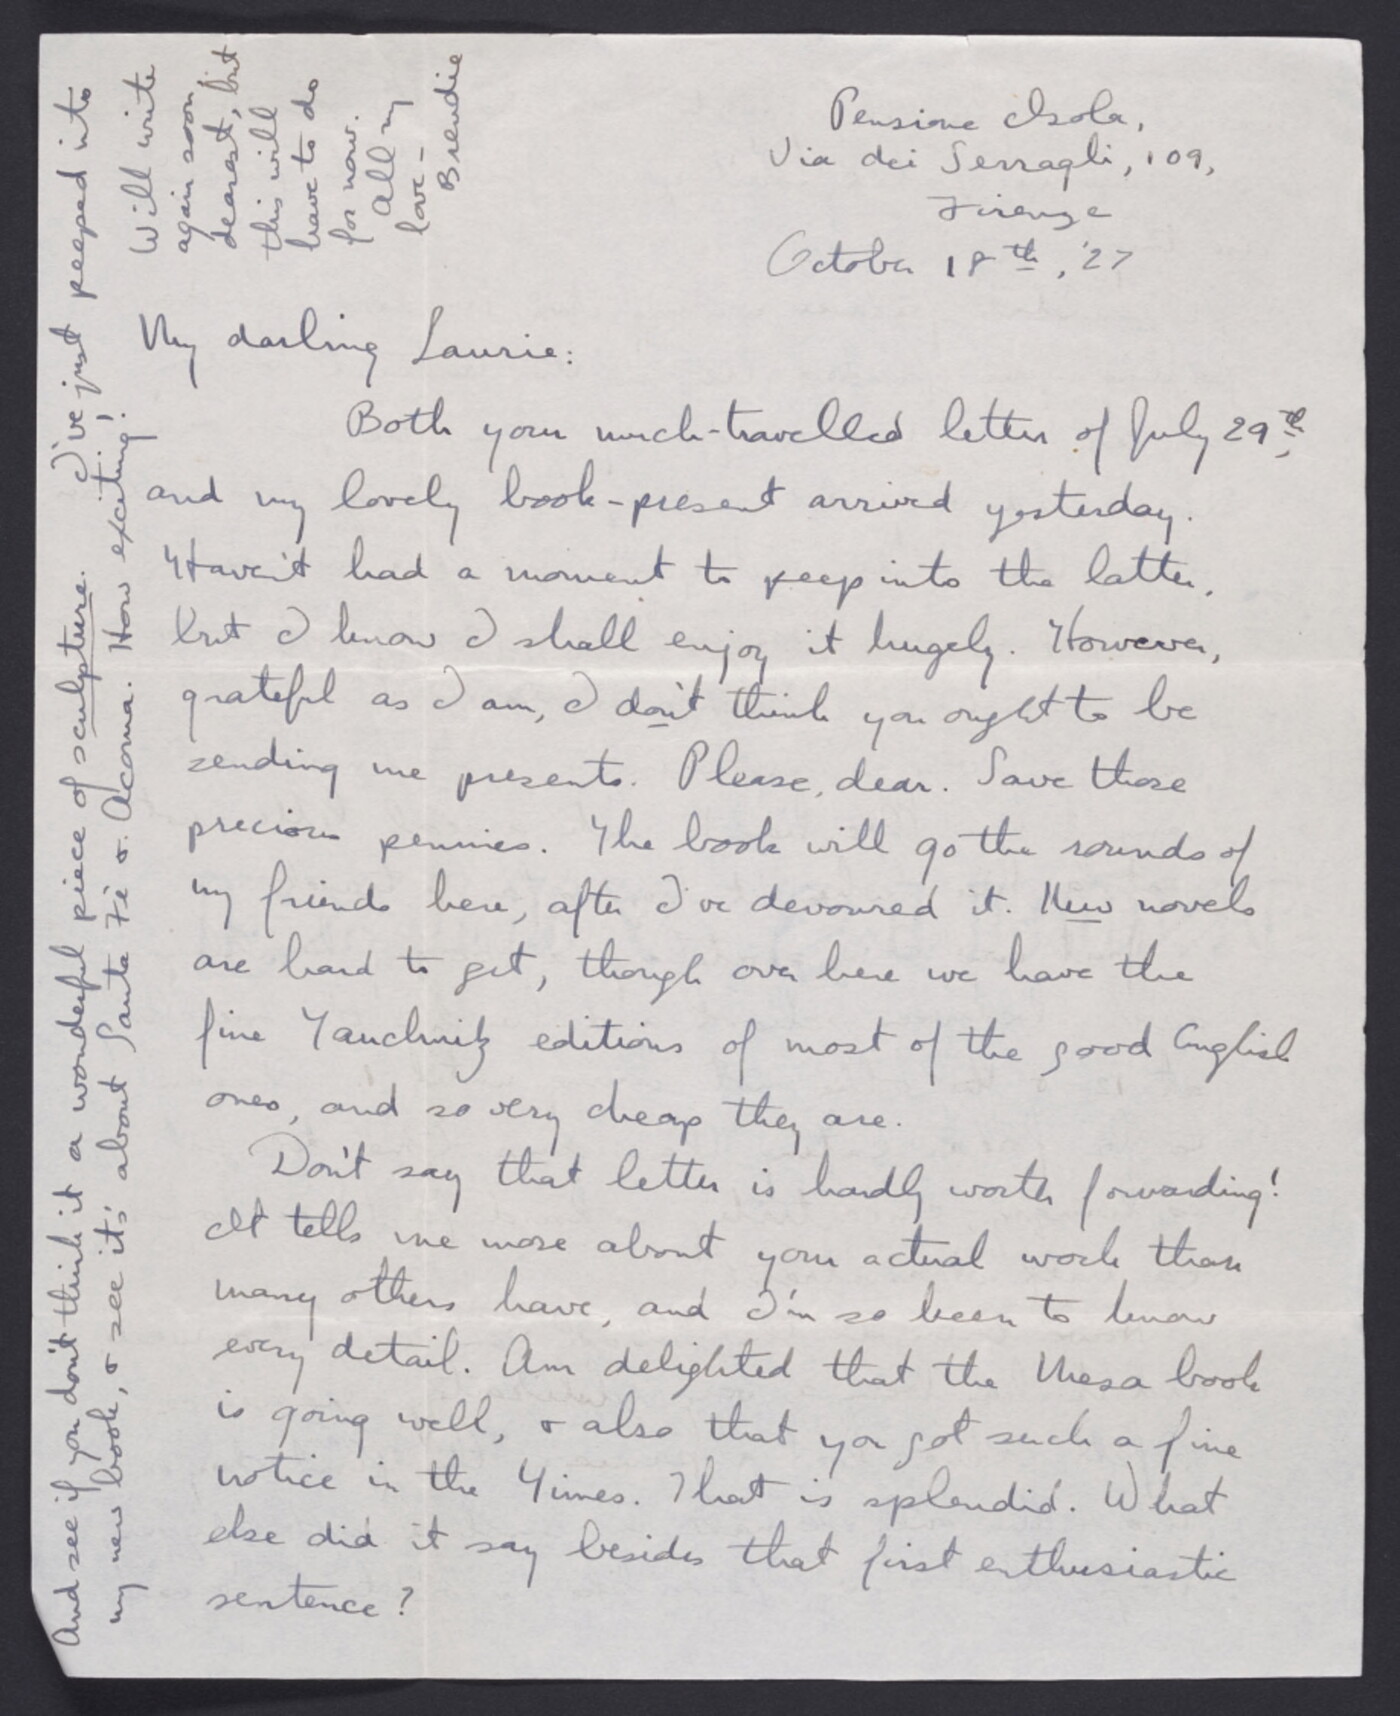 Pensione Isola,
Via dei Serragli, 109,
Firenze
October 18th, '27
My darling Laurie:
Both your much-travelled letter of July 29th,
and my lovely book-present arrived yesterday.
Haven't had a moment to peep into the latter,
but I know I shall enjoy it hugely. However,
grateful as I am, I don't think you ought to be
sending me presents. Please, dear. Save those
precious pennies. The book will go the rounds of
my friends here, after I've devoured it. New novels
are hard to get, though over here we have the
fine Tauchnitz editions of most of the good English
ones, and so very cheap they are.
Don't say that letter is hardly worth forwarding!
It tells me more about your actual work than
many others have, and I'm so keen to know
every detail. Am delighted that the Mesa book
is going well, & also that you got such a fine
notice in the Times. That is splendid. What
else did it say besides that first enthusiastic
sentence?
And see if you don't think it a wonderful piece of sculpture. I've just peeped into
my new book, & see it's about Santa Fé & Acoma. How exciting!
Will write
again soon,
dearest, but
this will
have to do
for now.
All my
love-
Brendie